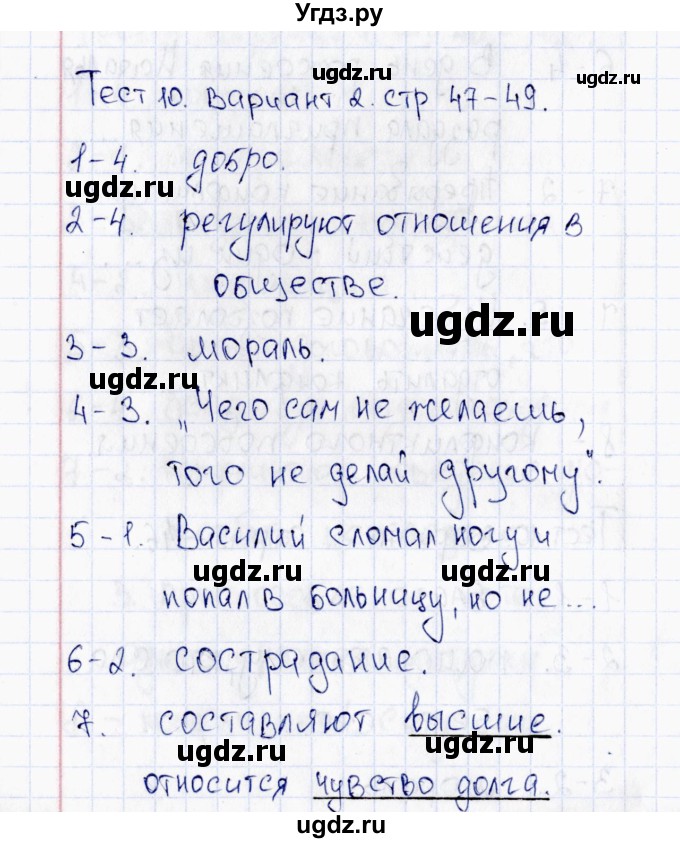 Угдз.ру
ugdz.ru ugdz.ru
Тест 10. Вариант 2. стр 47-49.
1-4. добро.
ugdz.ru
2-4. регулируют отношения в
обществе.
ugdz.ru
3-3. мораль.
ugdz.ru
4-3. „Чего сам не желаешь,
того не делай другому".
5-1. Василий сломал ногу и
ugdz.ru ugdz.ru
попал в больницу, но не...
6-2. сострадание.
7. составляют высшие.
ugdz.ru ugdz.ru
относится чувство долга.
ugdz.ru